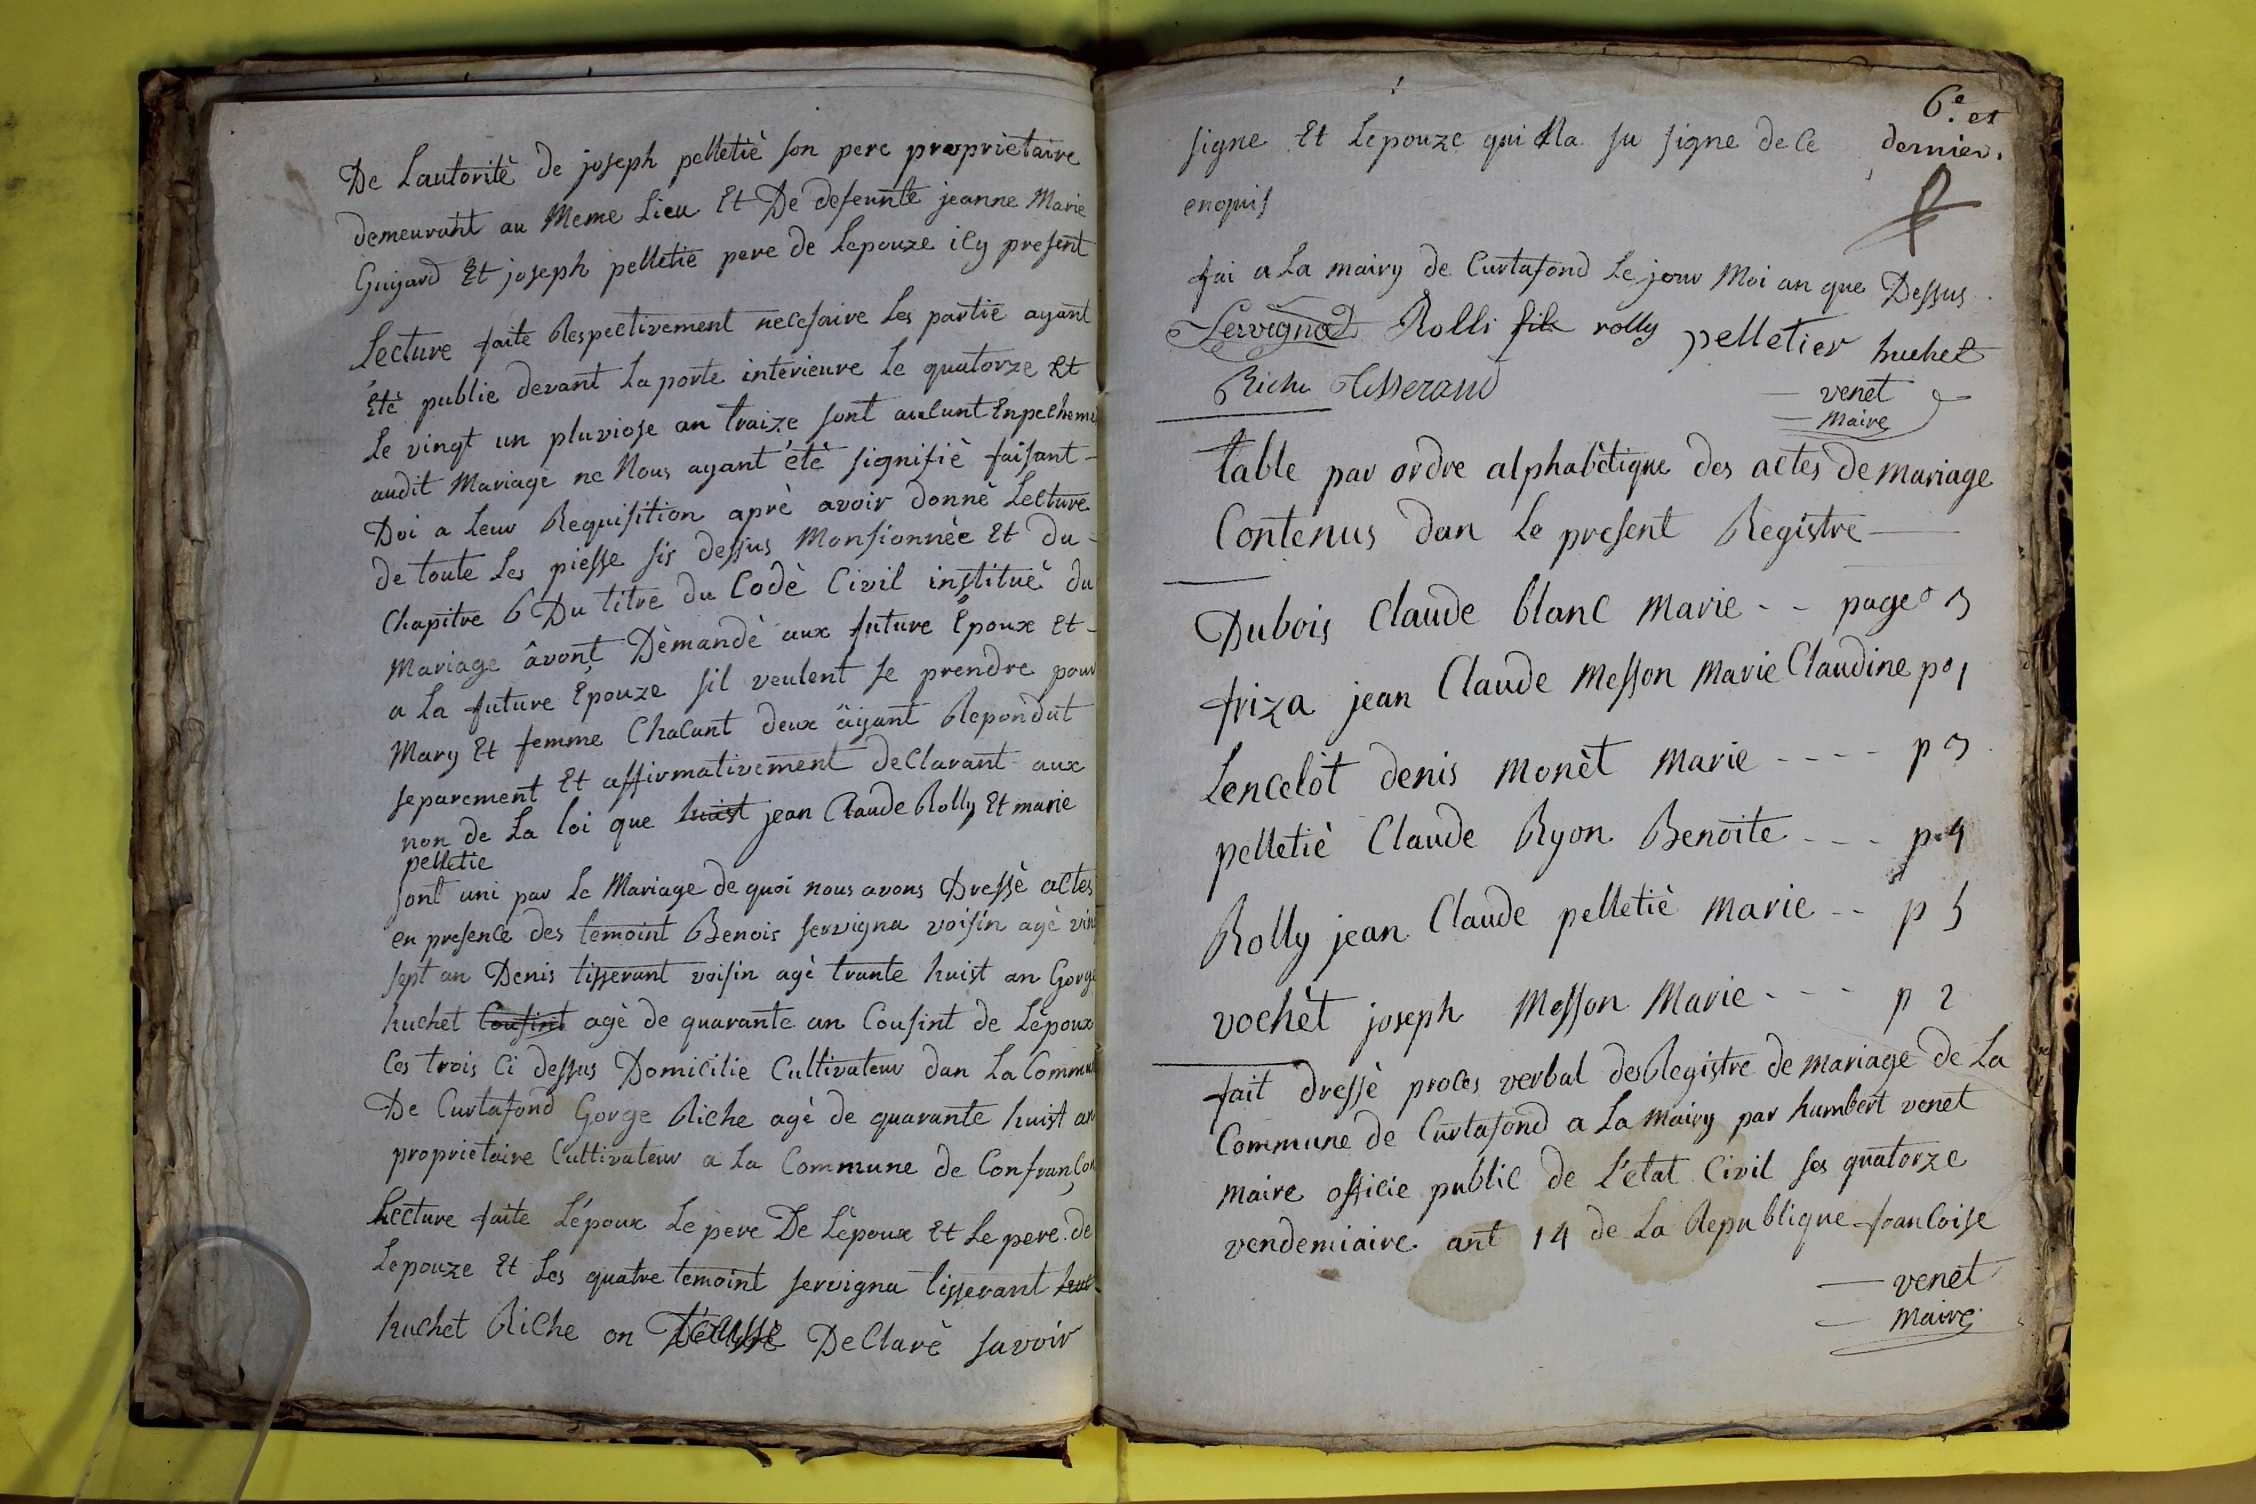 De Lautoritè de joseph pelletiè son pere propriètaire
demeurant au Meme Lieu Et De defeunte jeanne Marie
Guijard Et joseph pelletie pere de Lepouze icy present
Lecture faite Respectivement necesaire Les partie ayant
Etè publie devant La porte interieure Le quatorze Et
Le vingt un pluviose an traize sont aucunt Enpechem
audit Mariage ne Nous ayant étè signifiè faisant
Doi a Leur Requisition aprè avoir donnè Lecture
de toute Les piesse sis dessus Monsionnèe Et du
Chapitre 6 Du titre du Codè Civil instituè du
Mariage âvont Dèmandè aux future Epoux Et
a La future Epouze sil veulent se prendre pour
Mary Et femme Chacunt deux äyant Repondut
separement Et affirmativement deClarant aux
non de La loi que huist jean Claude Rolly Et marie
pelletie
sont uni par Le Mariage de quoi nous avons Dressè actes
en presence des temoint Benois servigna voisin agè vin
sept an Denis tisserant voisin agè trante huist an Gorge
huchet Cousint agè de quarante an Cousint de Lèpoux
Ces trois Ci dessus Domicilie Cultivateur dan La Commu
De Curtafond Gorge Riche agè de quarante huist an
proprietaire Cultivateur a La Commune de Confrançon
Lecture faite L'époux Le pere De Lèpoux Et Le pere de
Lepouze Et Les quatre temoint servigna tisserant huc
huchet Riche on DeClarè savoir
6e et
dernier.
signe Et Lepouze qui Na su signe de Ce
enquis
fai a La mairy de Curtafond Le jour Moi an que Dessus
Servignat Rolli fils rolly pelletier huchet
Riche tisserand venet
Maire
table par ordre alphabètique des actes de mariage
Contenus dan Le present Registre
Dubois Claude blanc Marie - - page 3
friza jean Claude Messon Marie Claudine po 1
Lencelot denis Monèt Marie - - - - p 3
pelletiè Claude Ryon Benoite - - - p. 4
Rolly jean Claude pelletiè Marie - - p 5
vochèt joseph Messon Marie - - - p 2
fait dressè proces verbal des Registre de mariage de La
Commune de Curtafond a La Mairy par humbert venet
maire officie public de L'etat Civil ses quatorze
vendemiaire ant 14 de La Republique francoise
venet
Maire